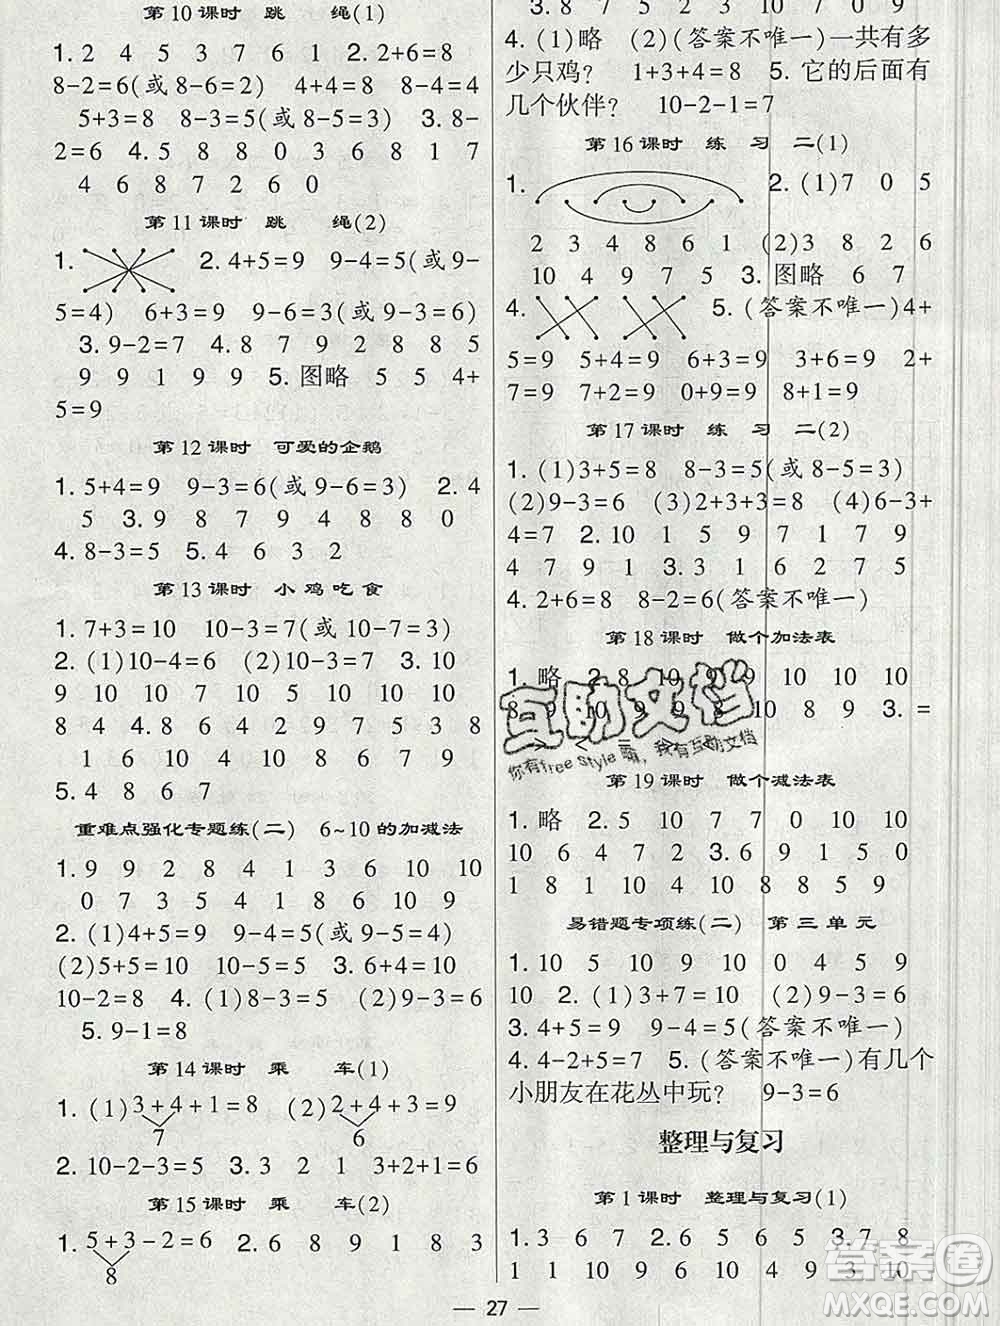 第10课时 跳 绳(1)
1. 2 4 5 3 7 6 1 2. 2+6=8
8-2=6(或8-6=2) 4+4=8 8-4=4
5+3=8 8-3=5(或8-5=3) 3. 8-
2=6 4. 5 8 8 0 3 6 8 1 7
4 6 8 7 2 6 0
第11课时 跳 绳(2)
1. 2. 4+5=9 9-4=5(或9-
5=4) 6+3=9 9-6=3(或9-3=6)
3. 9-2=7 4. 8 7 9 2 8 8 5
9 9 1 9 9 5. 图略 5 5 4+
5=9
第12课时 可爱的企鹅
1. 5+4=9 9-3=6(或9-6=3) 2. 4
5 3. 9 8 7 9 4 8 8 0
4. 8-3=5 5. 4 6 3 2
第13课时 小鸡吃食
1. 7+3=10 10-3=7(或10-7=3)
2. (1)10-4=6 (2)10-5=5 3. 10
9 10 10 7 10 10 10 10
8 4 4. 8 6 4 2 9 7 5 3 8
1 6 10 10 7 7 10 10 1
5. 4 8 6 7
重难点强化专题练(二) 6~10的加减法
1. 9 9 2 8 4 1 3 6 10
0 7 3 5 4 8 10 2 10 10
2. (1)4+5=9 9-4=5(或9-5=4)
(2)5+5=10 10-5=5 3. 6+4=10
10-2=8 4. (1)8-3=5 (2)9-3=6
5. 9-1=8
第14课时 乘 车(1)
1. (1)3+4+1=8 (2)2+4+3=9
7 6
2. 10-2-3=5 3. 3 2 1 3+2+1=6
第15课时 乘 车(2)
1. 5+3-2=6 2. 6 8 9 1 8 3
8
3. 8 7 5 2 3 10 7 0 9
4. (1)略 (2)(答案不唯一)一共有多
少只鸡? 1+3+4=8 5. 它的后面有
几个伙伴? 10-2-1=7
第16课时 练 习 二(1)
1. 2. (1)7 0 5
2 3 4 8 6 1 (2)3 8 2 6
10 4 9 7 5 3. 图略 6 7
4. 5. (答案不唯一)4+
5=9 5+4=9 6+3=9 3+6=9 2+
7=9 7+2=9 0+9=9 8+1=9
第17课时 练 习 二(2)
1. (1)3+5=8 8-3=5(或8-5=3)
(2)9-3=6 (3)2+3+3=8 (4)6-3+
4=7 2. 10 1 5 9 7 1 10 9
4 7 9 1 3. 1 6 2 7 5
4. 2+6=8 8-2=6(答案不唯一)
第18课时 做个加法表
1. 略 2. 8 10 9 9 10 10 10
8 9 10 9 9 8 10 8 9 3. =
第19课时 做个减法表
1. 略 2. 5 10 7 7 0 10 10
10 6 4 4 2 3. 6 9 1 5 0
1 8 1 10 4 10 8 8 5 9
易错题专项练(二) 第三单元
1. 10 5 10 9 10 0 4 5 9
10 2. (1)3+7=10 (2)9-3=6
3. 4+5=9 9-4=5(答案不唯一)
4. 4-2+5=7 5. (答案不唯一)有几个
小朋友在花丛中玩? 9-3=6
整理与复习
第1课时 整理与复习(1)
1. 3 6 7 2. 6 5 6 5 3. 7 8
1 1 10 10 4 9 9 3 10
27
互助文档
你有free Style嘛,我有互助文档
答案圈
MXQE.COM